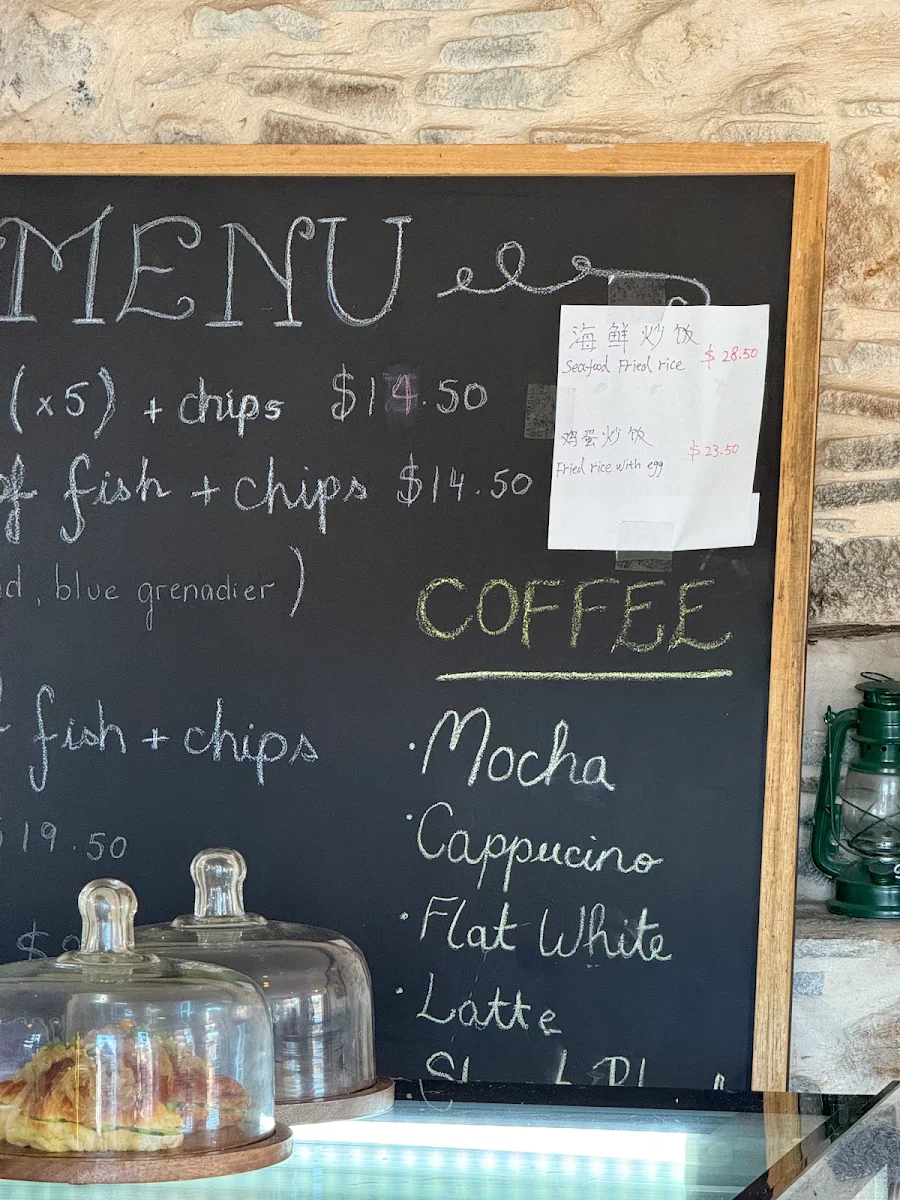 MENU
(x5) + chips $14.50
of fish + chips $14.50
, blue grenadier )
fish + chips
19.50
海鲜炒饭
Seafood Fried rice $28.50
鸡蛋炒饭 $23.50
Fried rice with egg
COFFEE
· Mocha
· Cappucino
· Flat White
· Latte